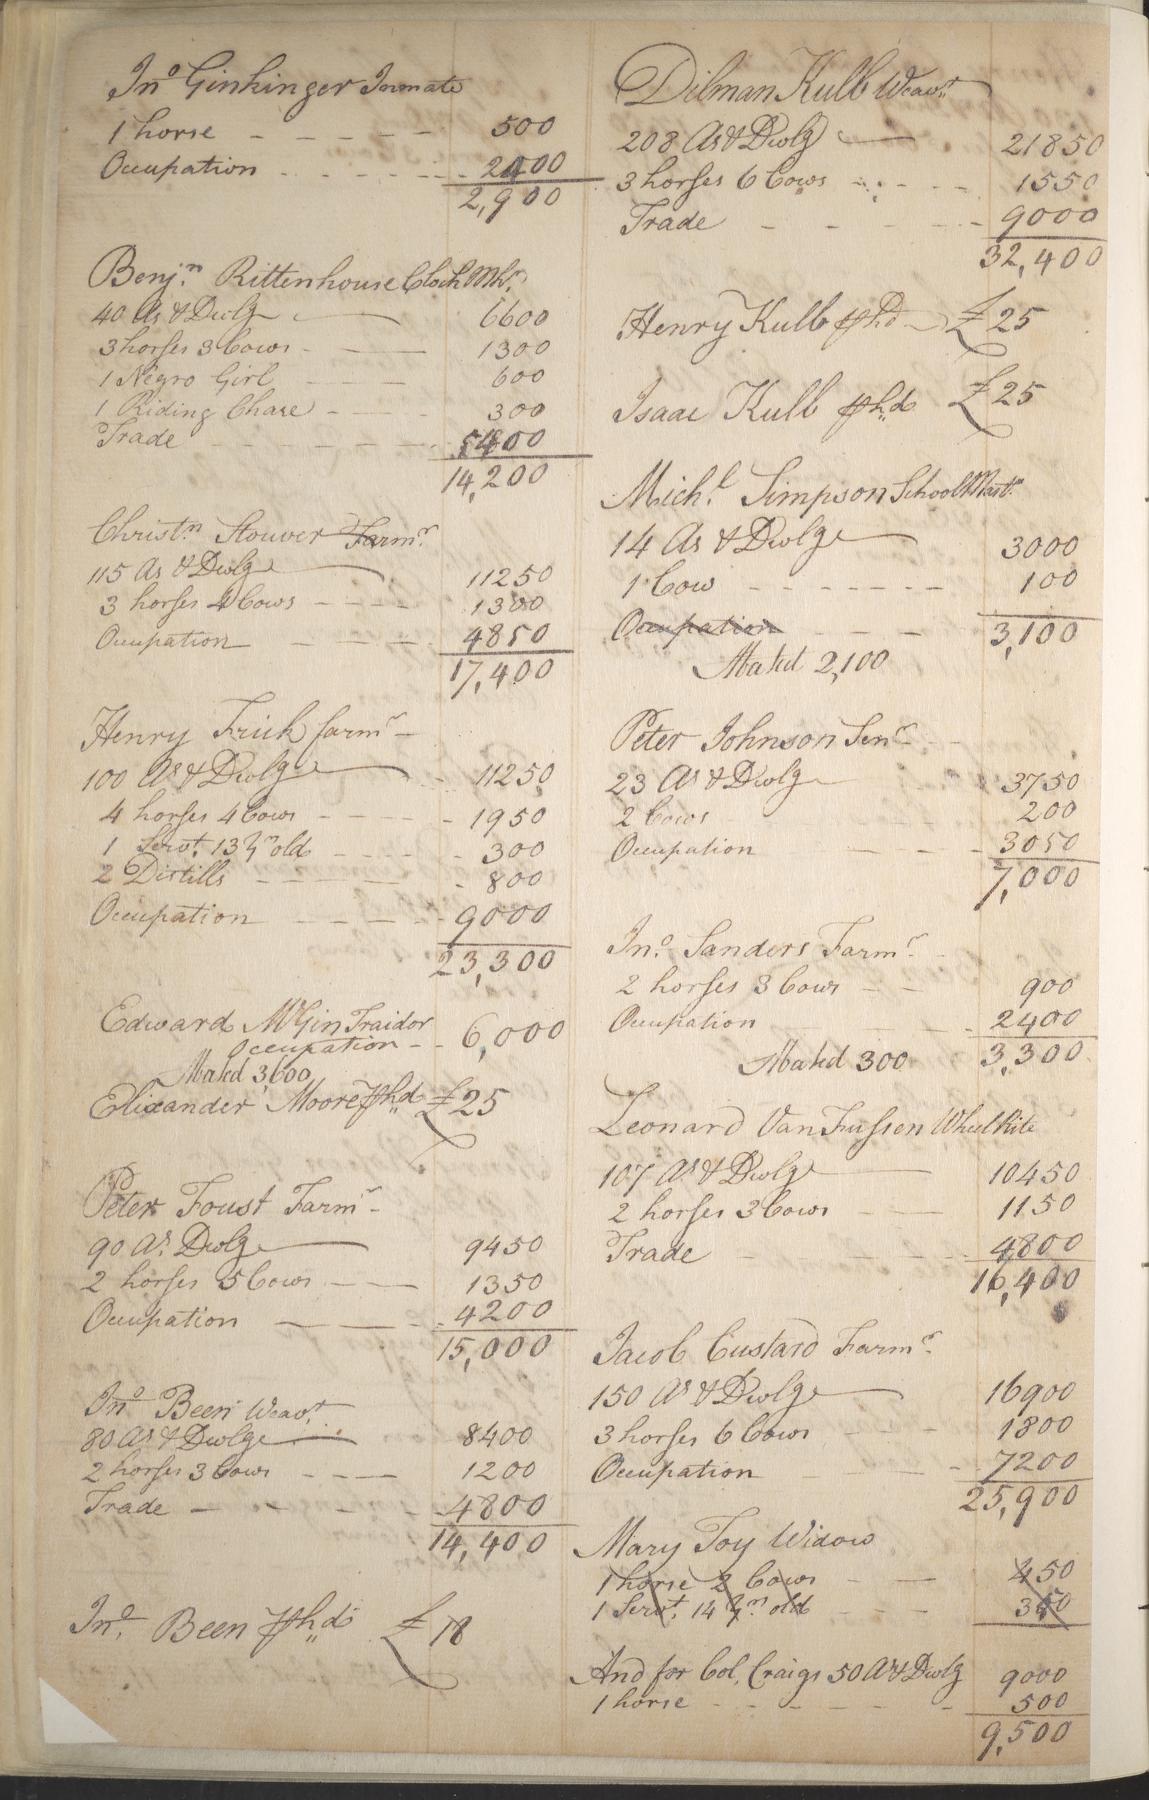 Jno Ginkinger Inmate
1 horse - - - - - 500
Occupation - - - - - - 2400
2,900
Benjn. Rittenhouse Clock Mkr.
40 As & Dwlg 6600
3 horses 3 Cows - 1300
1 Negro Girl 600
1 Riding Chare - 300
Trade 5400
14,200
Christn. Stouver Farmr.
115 As & Dwlge 11250
3 horses 4 Cows - - - - 1300
Occupation 4850
17,400
Henry Frick farmr
100 As & Dwlge 11250
4 horses 4 Cows - - - - 1950
1 Servt. 13 Yrs old - - - - 300
2 Distills - - - - 800
Occupation - - - - 9000
23,300
Edward McGin Traidor
Occupation - - 6,000
Abated 3,600
Elixander Moore Fhd £25
Peter Foust Farmr
90 As. Dwlge 9450
2 horses 5 Cows 1350
Occupation 4200
15,000
Jno Been Weavr.
80 As & Dwlge 8400
2 horses 3 Cows - - - 1200
Trade - - - - - 4800
14,400
Jno. Been Fhd £18
Dilman Kulb Weavr
208 As & Dwlg 21850
3 horses 6 Cows - - - - 1550
Trade - - - - - 9000
32,400
Henry Kulb Fhd £25
Isaac Kulb Fhd £25
Michl. Simpson School Mastr
14 As & Dwlge 3000
1 Cow - - - - - - - 100
Occupation - - - 3,100
Abated 2,100
Peter Johnson Senr
23 As & Dwlge 3750
2 Cows 200
Occupation 3050
7,000
Jno. Sanders Farmr.
2 horses 3 Cows - - 900
Occupation 2400
Abated 300 3,300
Leonard VanFussen Wheel Rite
107 As & Dwlge 10450
2 horses 3 Cows 1150
Trade 4800
16,400
Jacob Custard Farmr.
150 As & Dwlge 16900
3 horses 6 Cows - - - - 1800
Occupation 7200
25,900
Mary Toy Widow
1 horse 2 Cows 450
1 Servt. 14 Yrs old
And for Col. Craigs 50 As & Dwlg 9000
1 horse - - - - - - 500
9,500